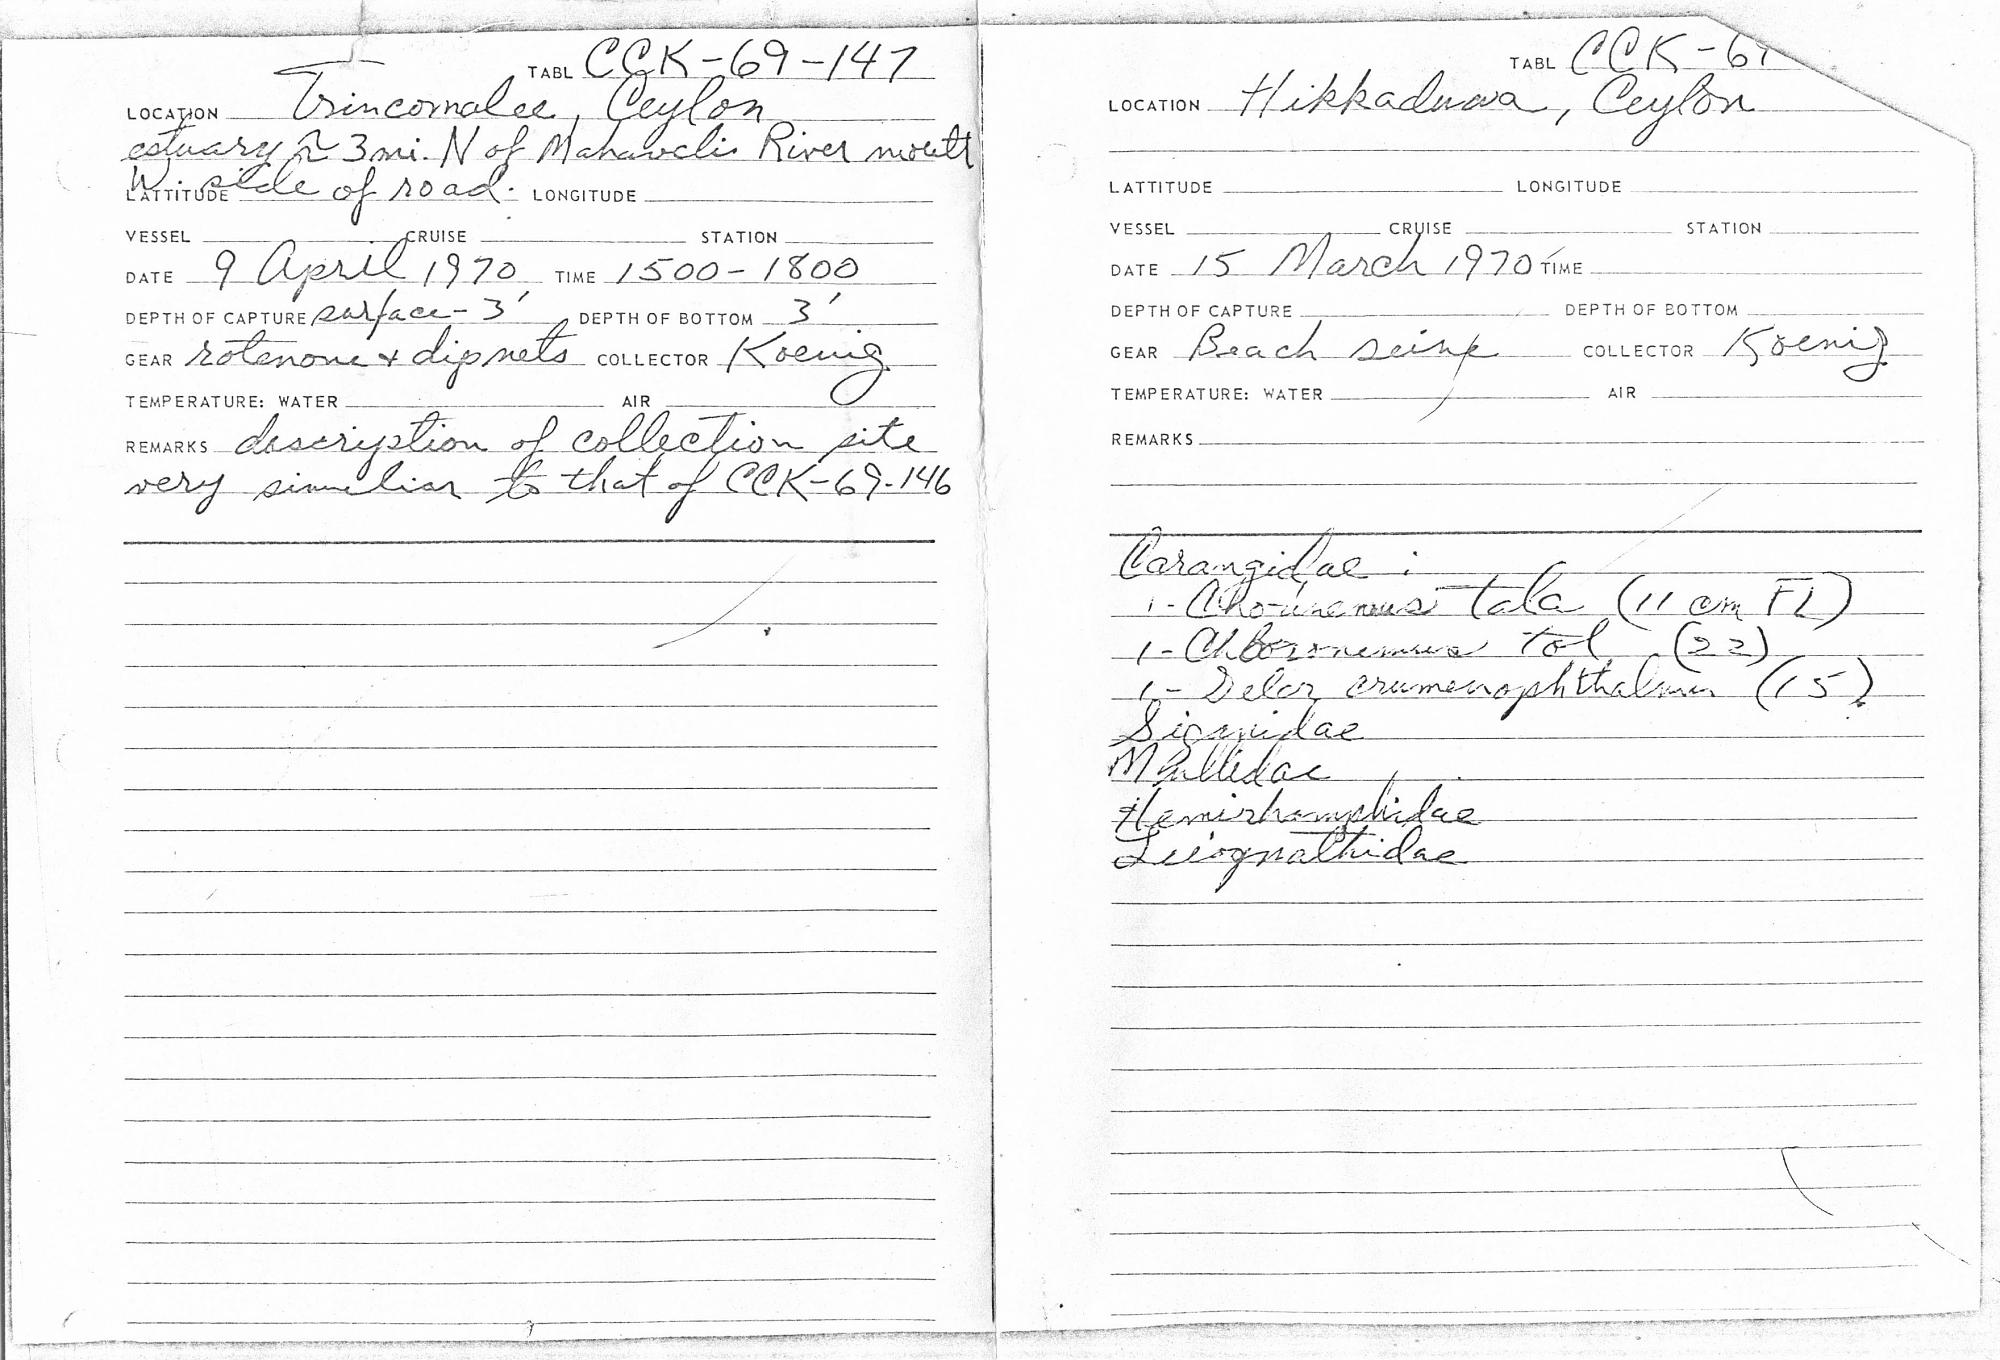 TABL CCK-69-147
LOCATION Trincomalee, Ceylon
estuary ~ 3mi. N of Mahaweli River mouth
W. side of road.
LATTITUDE LONGITUDE
VESSEL CRUISE STATION
DATE 9 April 1970 TIME 1500-1800
DEPTH OF CAPTURE surface-3' DEPTH OF BOTTOM 3'
GEAR rotenone + dipnets COLLECTOR Koenig
TEMPERATURE: WATER AIR
REMARKS description of collection site
very similiar to that of CCK-69-146
TABL CCK-69
LOCATION Hikkaduwa, Ceylon
LATTITUDE LONGITUDE
VESSEL CRUISE STATION
DATE 15 March 1970 TIME
DEPTH OF CAPTURE DEPTH OF BOTTOM
GEAR Beach seine COLLECTOR Koenig
TEMPERATURE: WATER AIR
REMARKS
Carangidae :
1- Chorinemus tala (11 cm FL)
1- Chorinemus tol (22)
1- Selar crumenophthalmus (15)
Siganidae
Mullidae
Hemirhamphidae
Leiognathidae